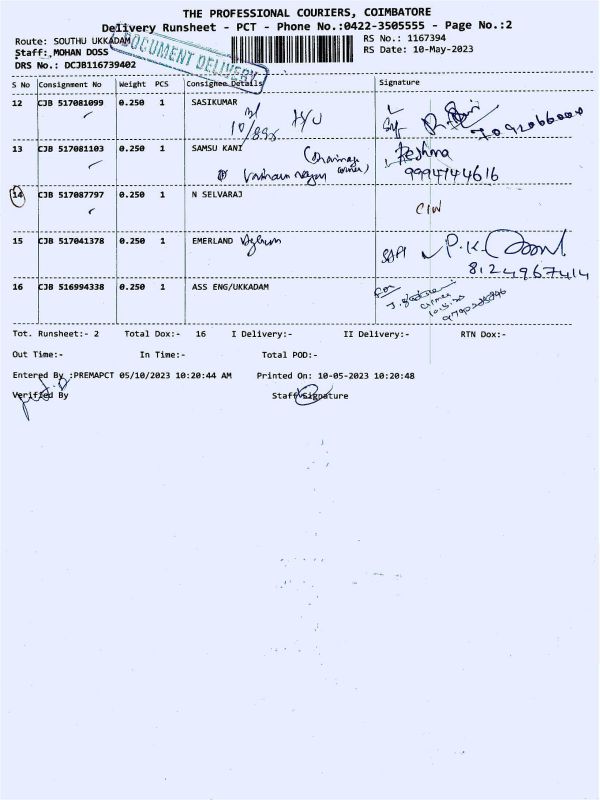 THE PROFESSIONAL COURIERS, COIMBATORE
Delivery Runsheet - PCT - Phone No.:0422-3505555 - Page No.:2
Route: SOUTHU UKKADAM
DOCUMENT DELIVERY
RS No.: 1167394
Staff: MOHAN DOSS
RS Date: 10-May-2023
DRS No.: DCJB116739402
S No Consignment No Weight PCS Consignee Details Signature
12 CJB 517081099 0.250 1 SASIKUMAR
13 CJB 517081103 0.250 1 SAMSU KANI Reshma
9994744616
14 CJB 517087797 0.250 1 N SELVARAJ
15 CJB 517041378 0.250 1 EMERLAND P.K.
8124967414
16 CJB 516994338 0.250 1 ASS ENG/UKKADAM
Tot. Runsheet:- 2 Total Dox:- 16 I Delivery:- II Delivery:- RTN Dox:-
Out Time:- In Time:- Total POD:-
Entered By :PREMAPCT 05/10/2023 10:20:44 AM Printed On: 10-05-2023 10:20:48
Verified By Staff Signature